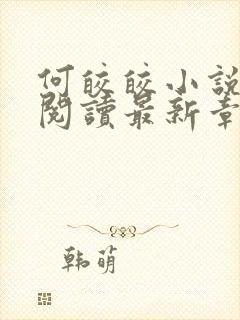 何皎皎小說
閱讀最新章
韩萌